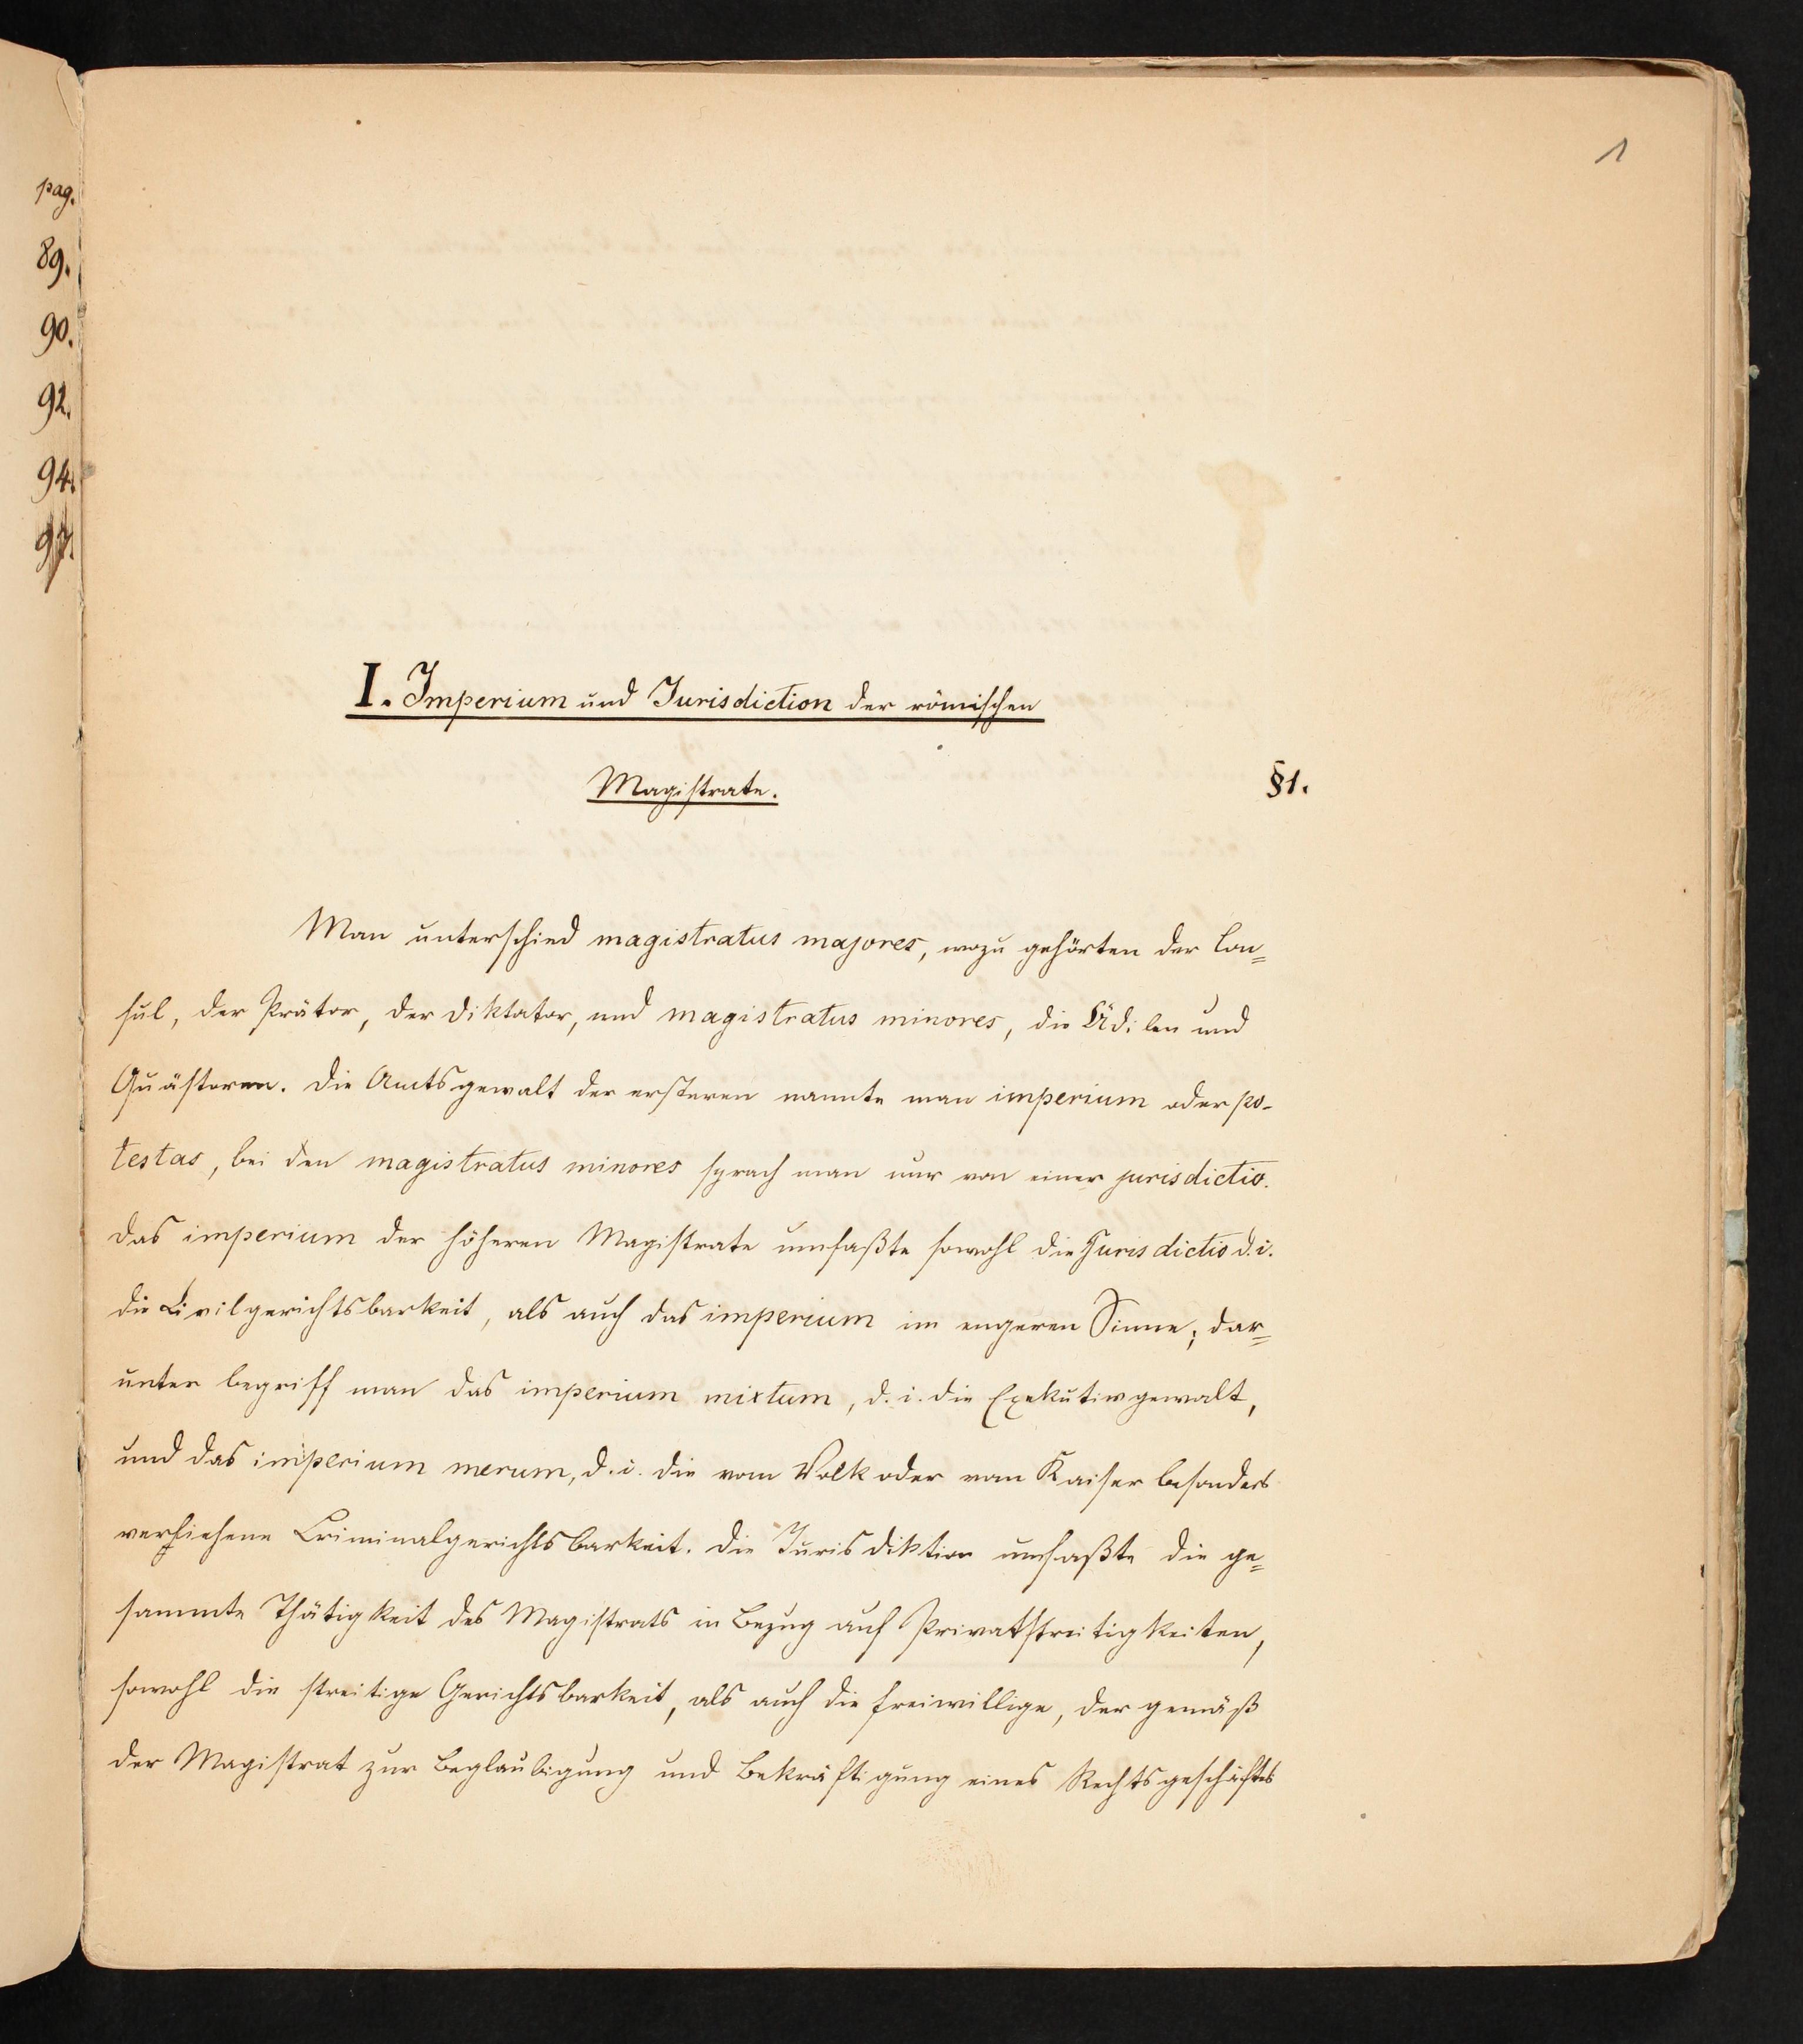 pag.
89.
90.
92.
94.
97.
1
I. Imperium und Jurisdiction der römischen
Magistrate.
§1.
Man unterschied magistratus majores, wozu gehörten der Con=
sul, der Prätor, der Diktator, und magistratus minores, die Ädilen und
Quästoren. Die Amtsgewalt der ersteren nannte man imperium oder po-
testas, bei den magistratus minores sprach man nur von einer jurisdictio.
Das imperium der höheren Magistrate umfaßte sowohl die Jurisdictio d. i.
die Civilgerichtsbarkeit, als auch das imperium im engeren Sinne; dar=
unter begriff man das imperium mixtum, d. i. die Exekutivgewalt,
und das imperium merum, d. i. die vom Volk oder vom Kaiser besonders
verliehene Criminalgerichtsbarkeit. Die Jurisdiktion umfaßte die ge=
sammte Thätigkeit des Magistrats in Bezug auf Privatstreitigkeiten,
sowohl die streitige Gerichtsbarkeit, als auch die freiwillige, der gemäß
der Magistrat zur Beglaubigung und Bekräftigung eines Rechtsgeschäftes